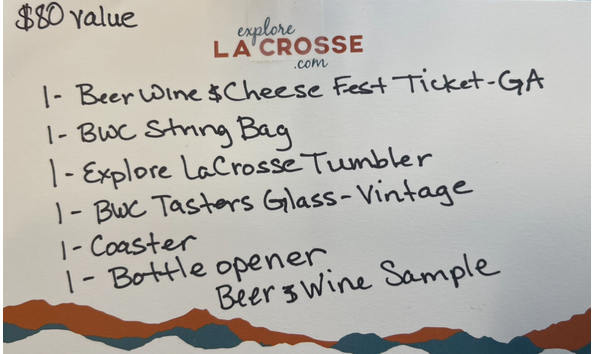 $80 value
explore
LA CROSSE
.com
1- Beer Wine & Cheese Fest Ticket-GA
1- BWC String Bag
1- Explore LaCrosse Tumbler
1- BWC Tasters Glass- Vintage
1- Coaster
1- Bottle opener
Beer & Wine Sample